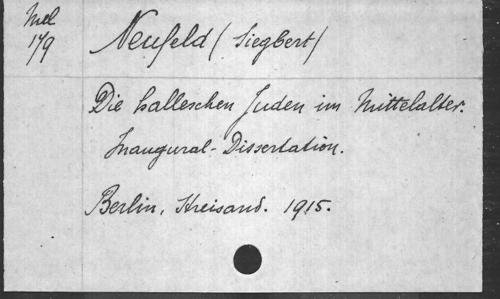 Mel
179
Neufeld (Siegbert)
Die halleschen Juden im Mittelalter.
Inaugural-Dissertation.
Berlin, Itreisand. 1915.